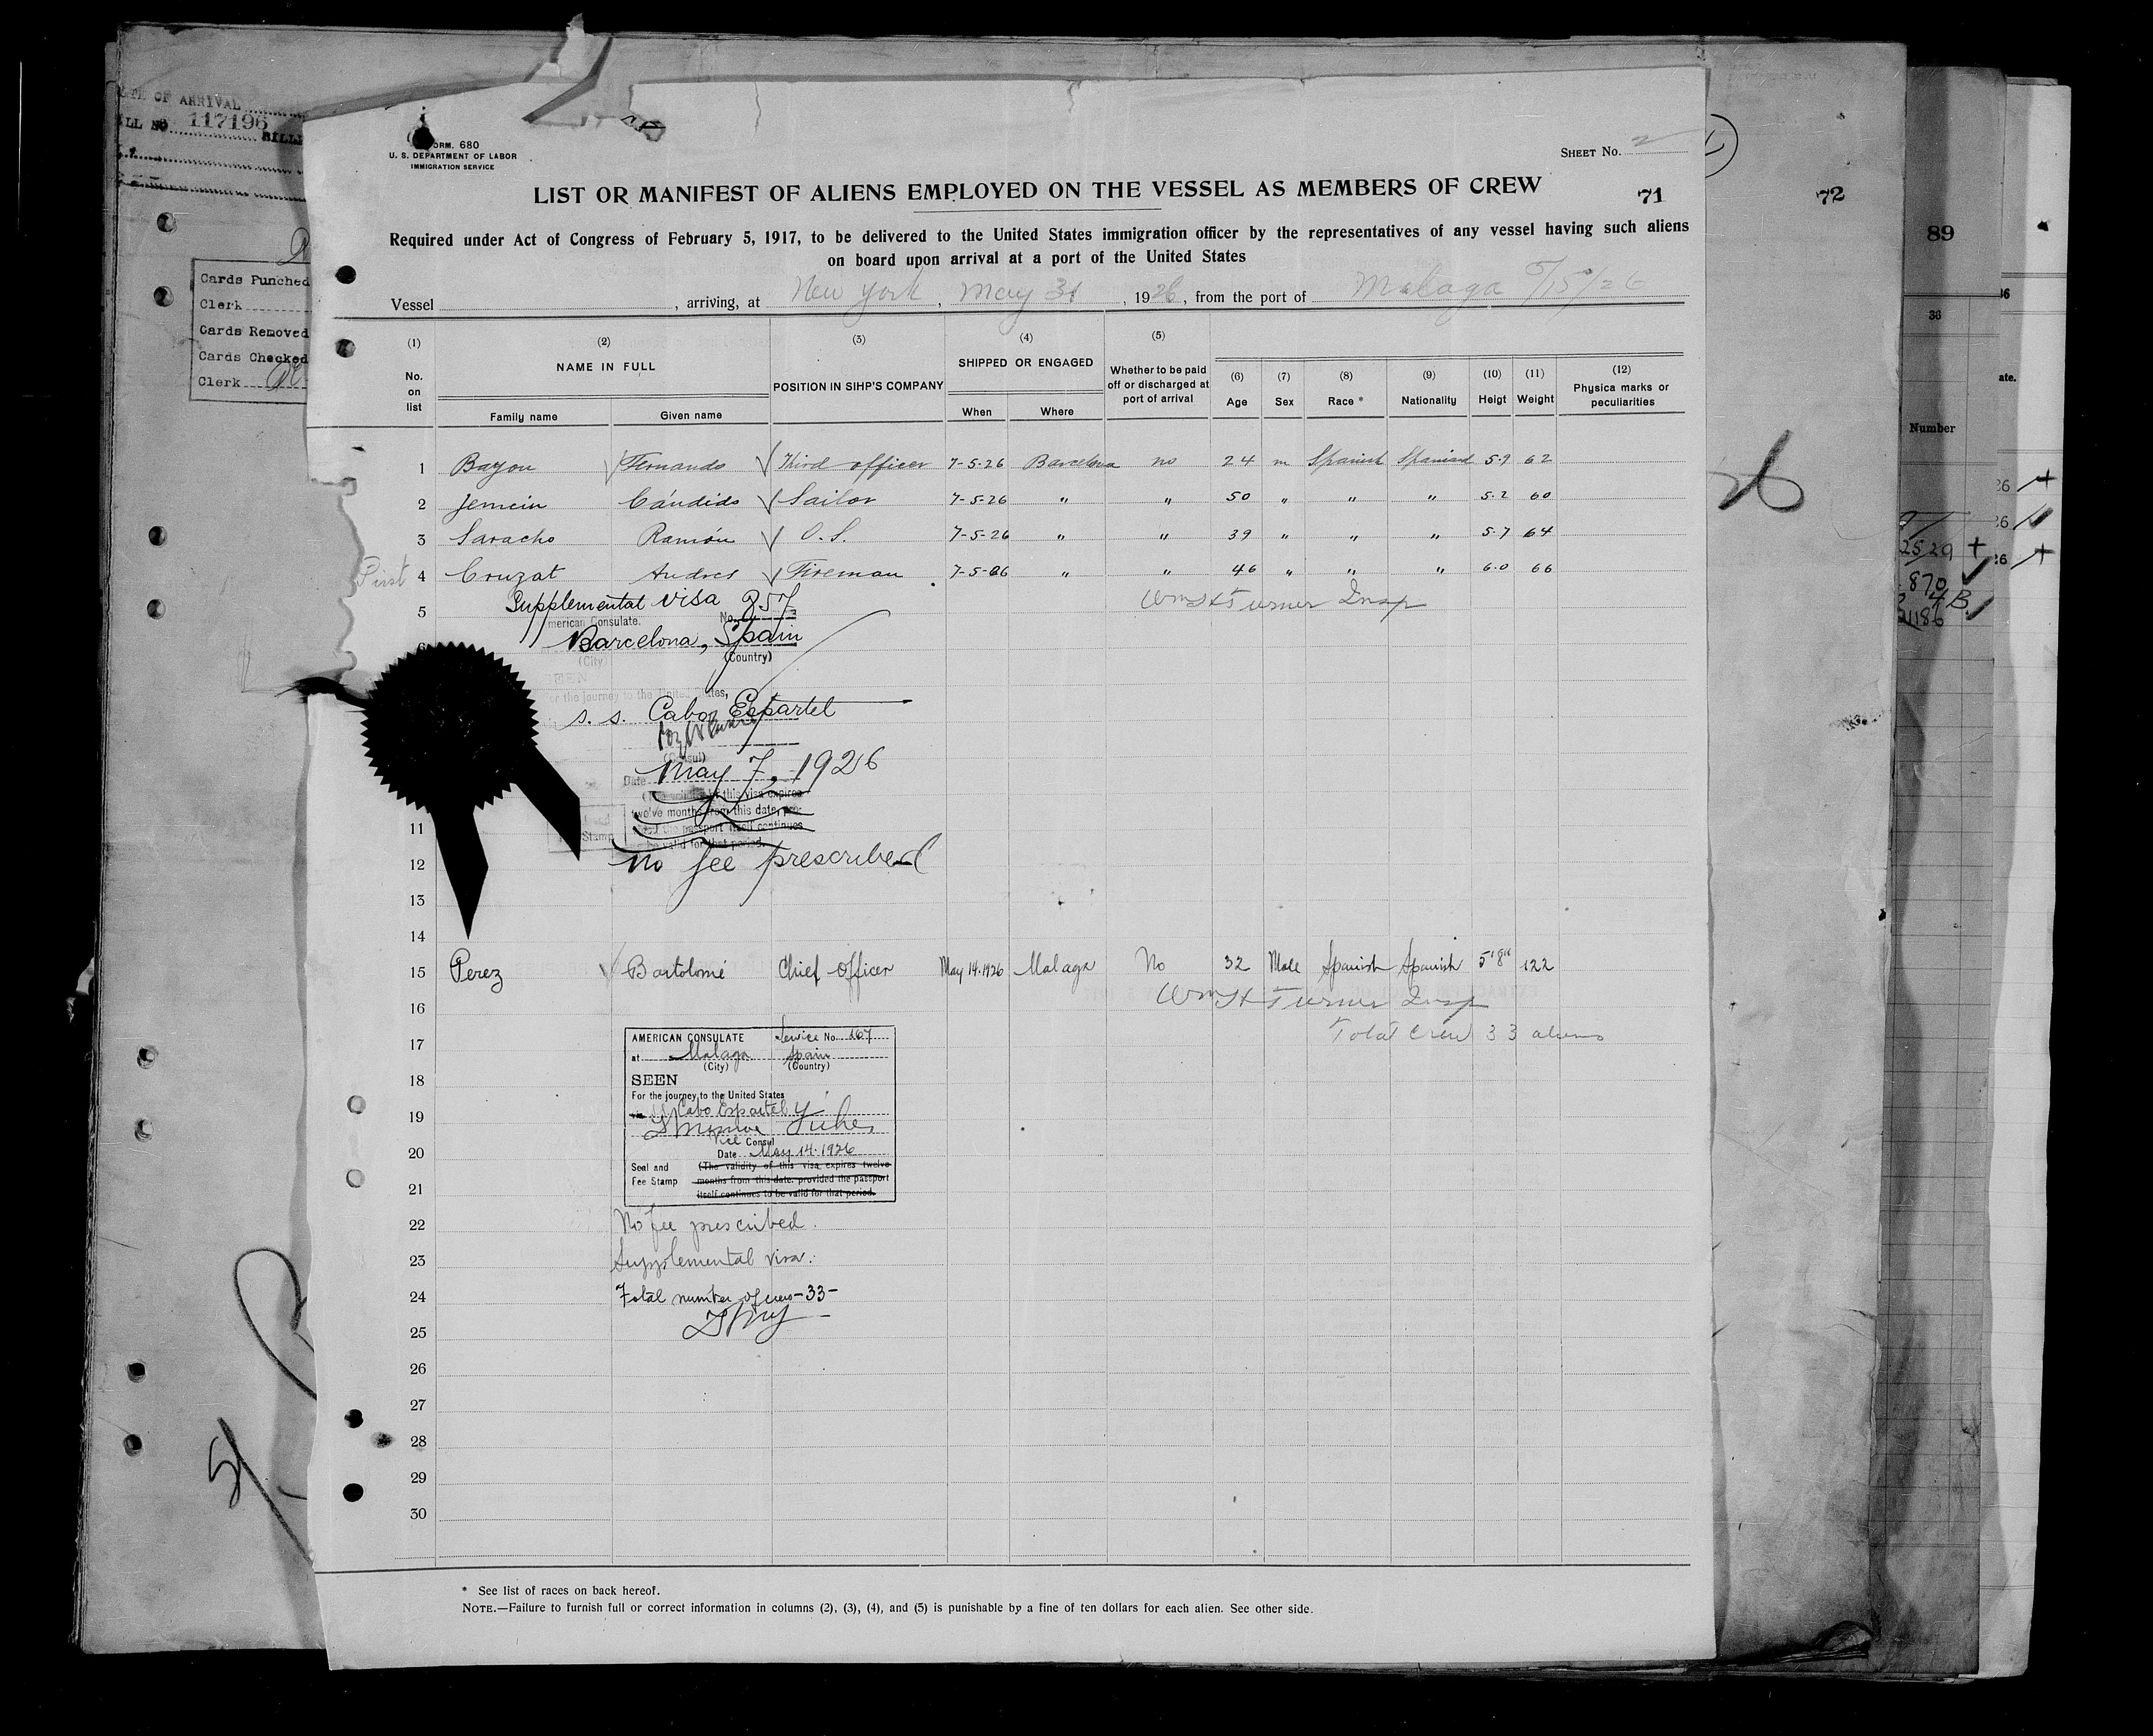 OF ARRIVAL
117196
Cards Punched
Clerk
Cards Removed
Cards Checked
Clerk
FORM. 680
U. S. DEPARTMENT OF LABOR
IMMIGRATION SERVICE
SHEET No. 2
LIST OR MANIFEST OF ALIENS EMPLOYED ON THE VESSEL AS MEMBERS OF CREW
71
Required under Act of Congress of February 5, 1917, to be delivered to the United States immigration officer by the representatives of any vessel having such aliens
on board upon arrival at a port of the United States
Vessel , arriving, at New York , May 31 , 1926 , from the port of Malaga 5/15/26
(1) (2) (3) (4) (5)
No. on list NAME IN FULL POSITION IN SIHP'S COMPANY SHIPPED OR ENGAGED Whether to be paid off or discharged at port of arrival (6) Age (7) Sex (8) Race * (9) Nationality (10) Heigt (11) Weight (12) Physica marks or peculiarities
Family name Given name When Where
1 Bayou Fernando Third officer 7-5-26 Barcelona no 24 m Spanish Spaniard 5-9 62
2 Jemein Cándido Sailor 7-5-26 " " 50 " " " 5-2 60
3 Saracho Ramón O. S. 7-5-26 " " 39 " " " 5-7 64
First 4 Cruzat Andres Fireman 7-5-26 " " 46 " " " 6-0 66
5 Supplemental visa No. 257 Wm H Turner Insp
merican Consulate.
6 Barcelona, Spain
(City) (Country)
SEEN
or the journey to the United States,
s. s. Cabo Espartel
(Consul)
Date May 7, 1926
of this visa expires
twelve months from this date, pro-
the passport itself continues
be valid for that period.
Stamp
11
12 No fee prescribed
13
14
15 Perez Bartolomé Chief officer May 14.1926 Malaga No 32 Male Spanish Spanish 5'8" 122
16 Wm H Turner Insp
17 Total crew 33 aliens
AMERICAN CONSULATE Service No. 167
at Malaga Spain
(City) (Country)
18 SEEN
For the journey to the United States
19 Cabo Espartel
Vice Consul
20 Date May 14.1926
Seal and Fee Stamp (The validity of this visa expires twelve
months from this date. provided the passport
21 itself continues to be valid for that period.
22 No fee prescribed.
23 Supplemental visa.
24 Total number of crew -33-
25
26
27
28
29
30
* See list of races on back hereof.
NOTE.—Failure to furnish full or correct information in columns (2), (3), (4), and (5) is punishable by a fine of ten dollars for each alien. See other side.
72
89
36
Number